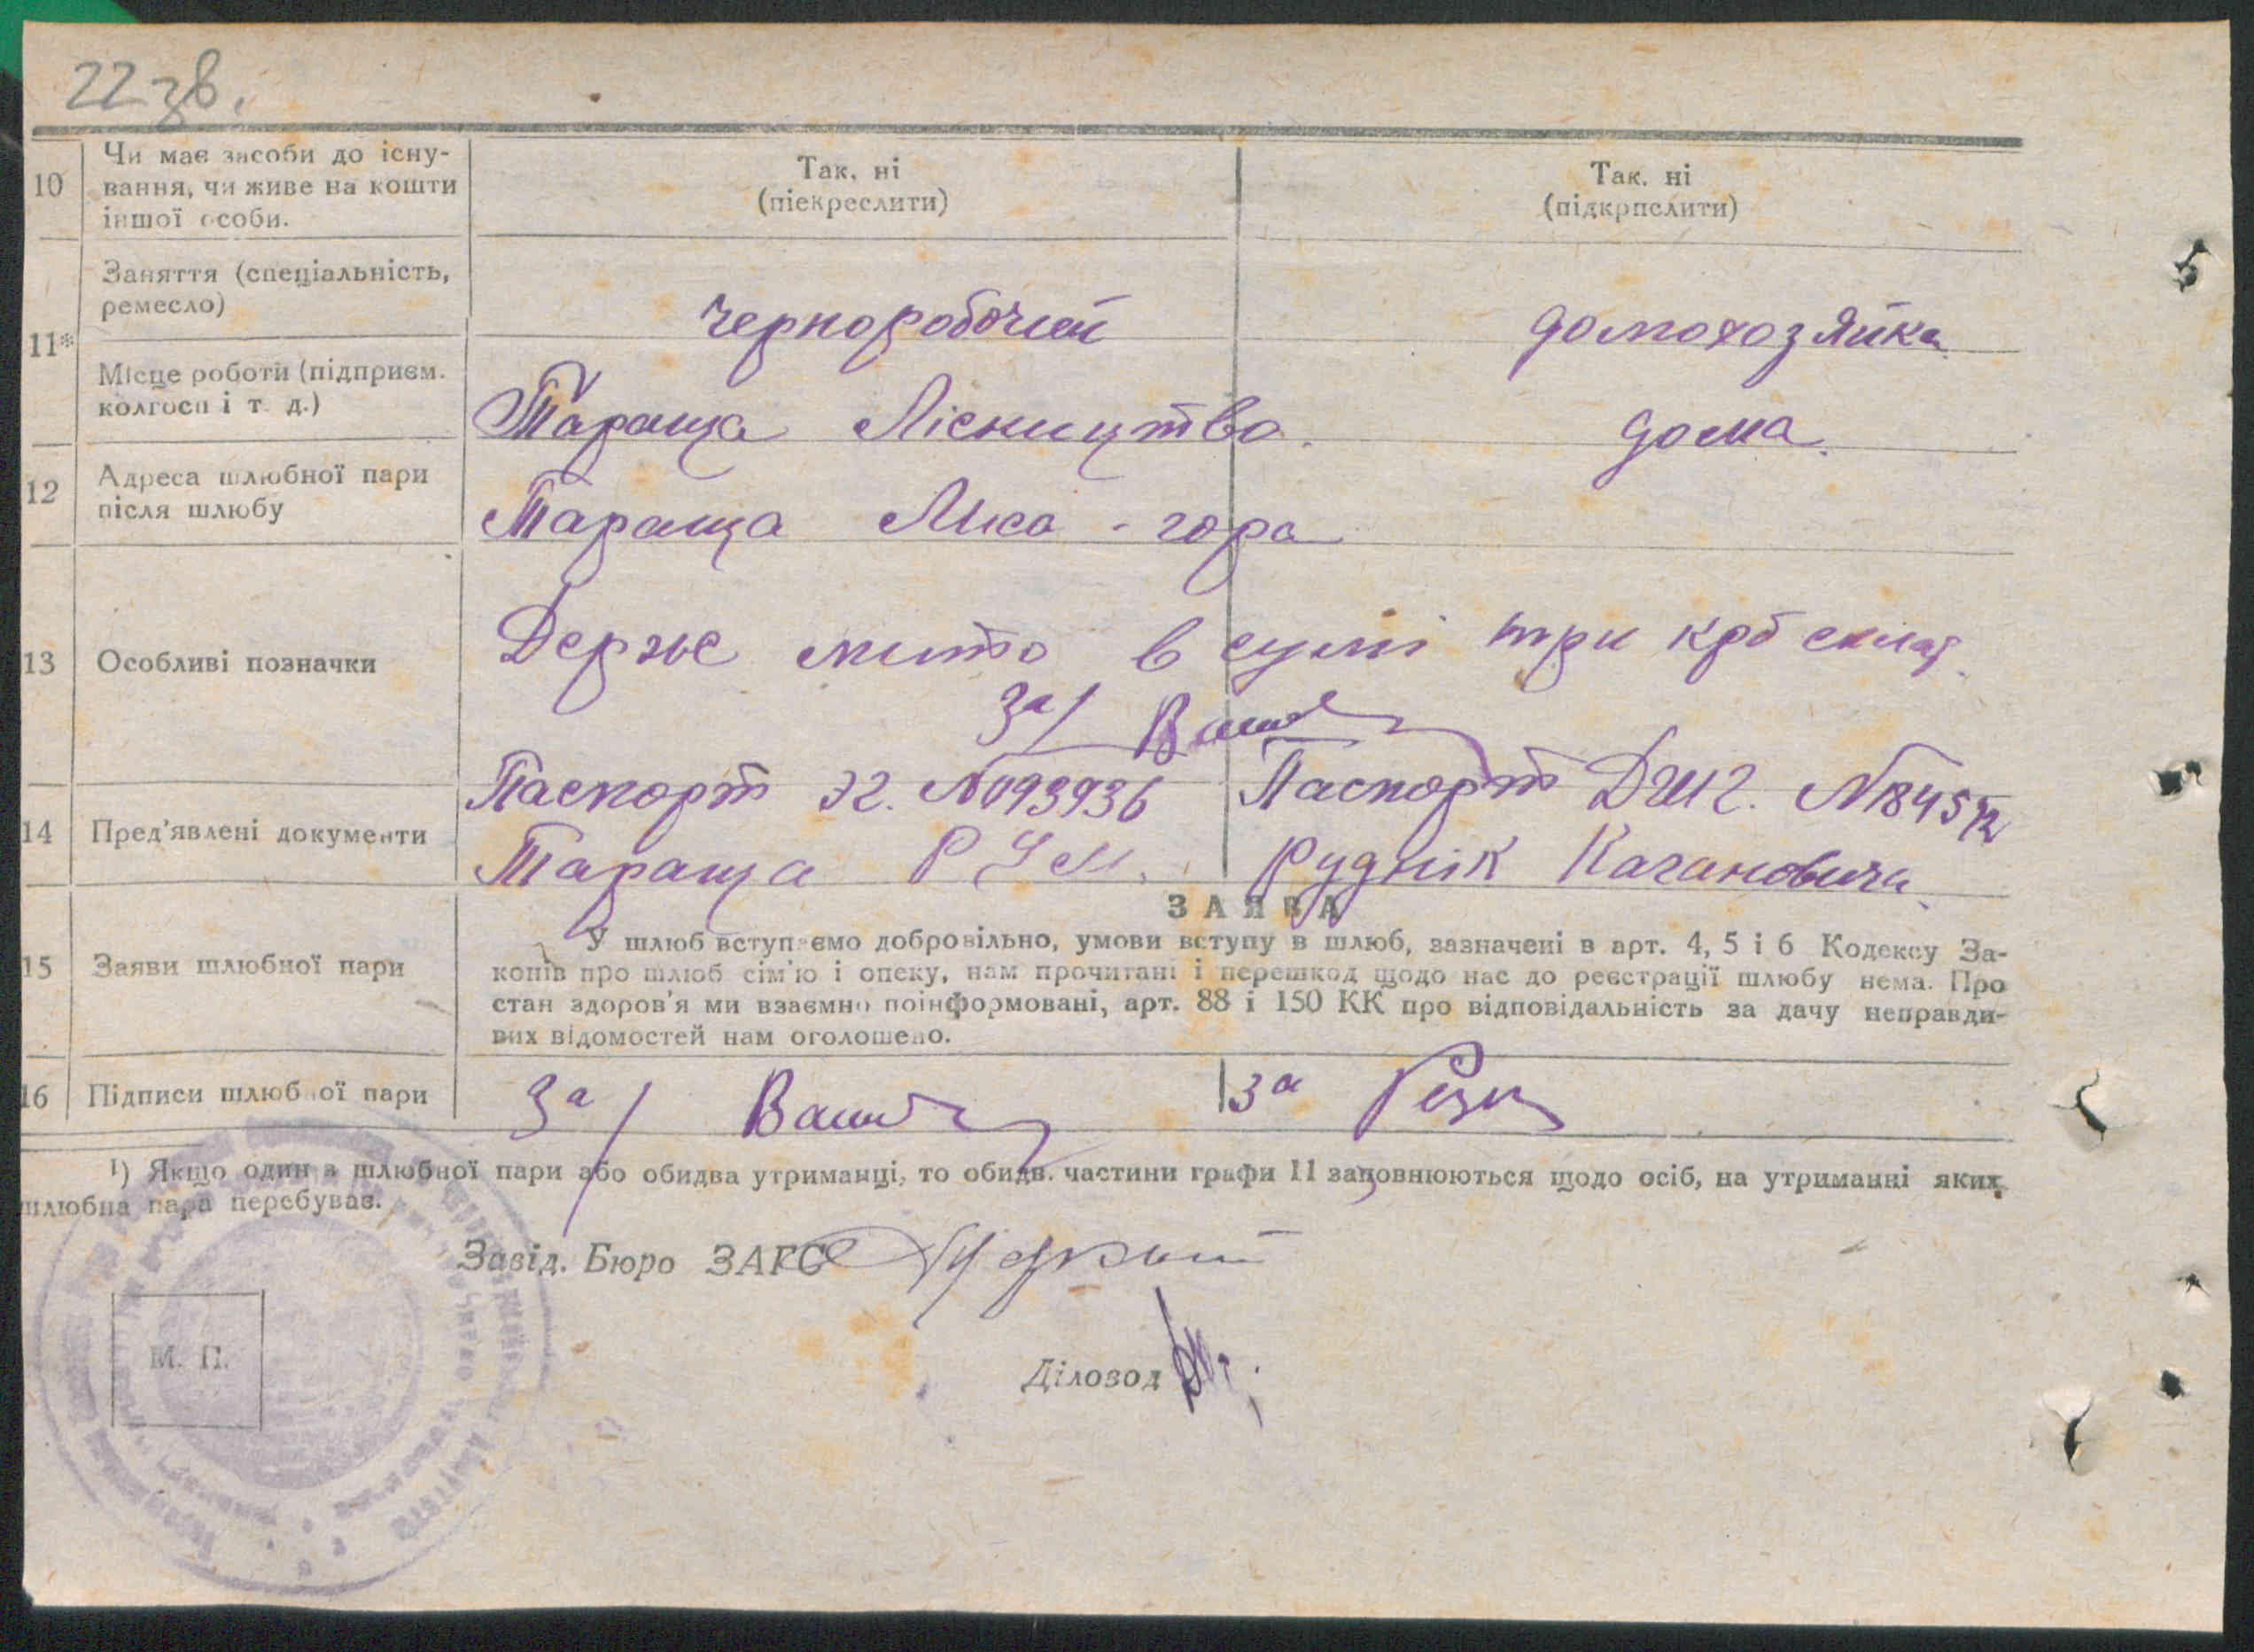 22 зв.
10 Чи має засоби до існу-
вання, чи живе на кошти
іншої особи.
Так, ні
(піекреслити)
Так. ні
(підкрпслити)
11*
Заняття (спеціальність,
ремесло)
чернорабочий
домохозяйка
Місце роботи (підприєм.
колгосп і т. д.)
Тараща Лісництво.
дома.
12 Адреса шлюбної пари
після шлюбу
Тараща Лиса - гора
13 Особливі позначки
Держ мито в сумі три крб
За/
14 Пред'явлені документи
Паспорт №093936
Тараща Р У М.
Паспорт
рудник Кагановича
ЗАЯВА
15 Заяви шлюбної пари
У шлюб вступаємо добровільно, умови вступу в шлюб, зазначені в арт. 4, 5 і 6 Кодексу За-
конів про шлюб сім'ю і опеку, нам прочитані і перешкод щодо нас до реєстрації шлюбу нема. Про
стан здоров'я ми взаємно поінформовані, арт. 88 і 150 КК про відповідальність за дачу неправди-
вих відомостей нам оголошено.
16 Підписи шлюбної пари
За/
За
¹) Якщо один з шлюбної пари або обидва утриманці, то обидв. частини графи 11 заповнюються щодо осіб, на утриманні яких
шлюбна пара перебуває.
Завід. Бюро ЗАГС
М. П.
Діловод